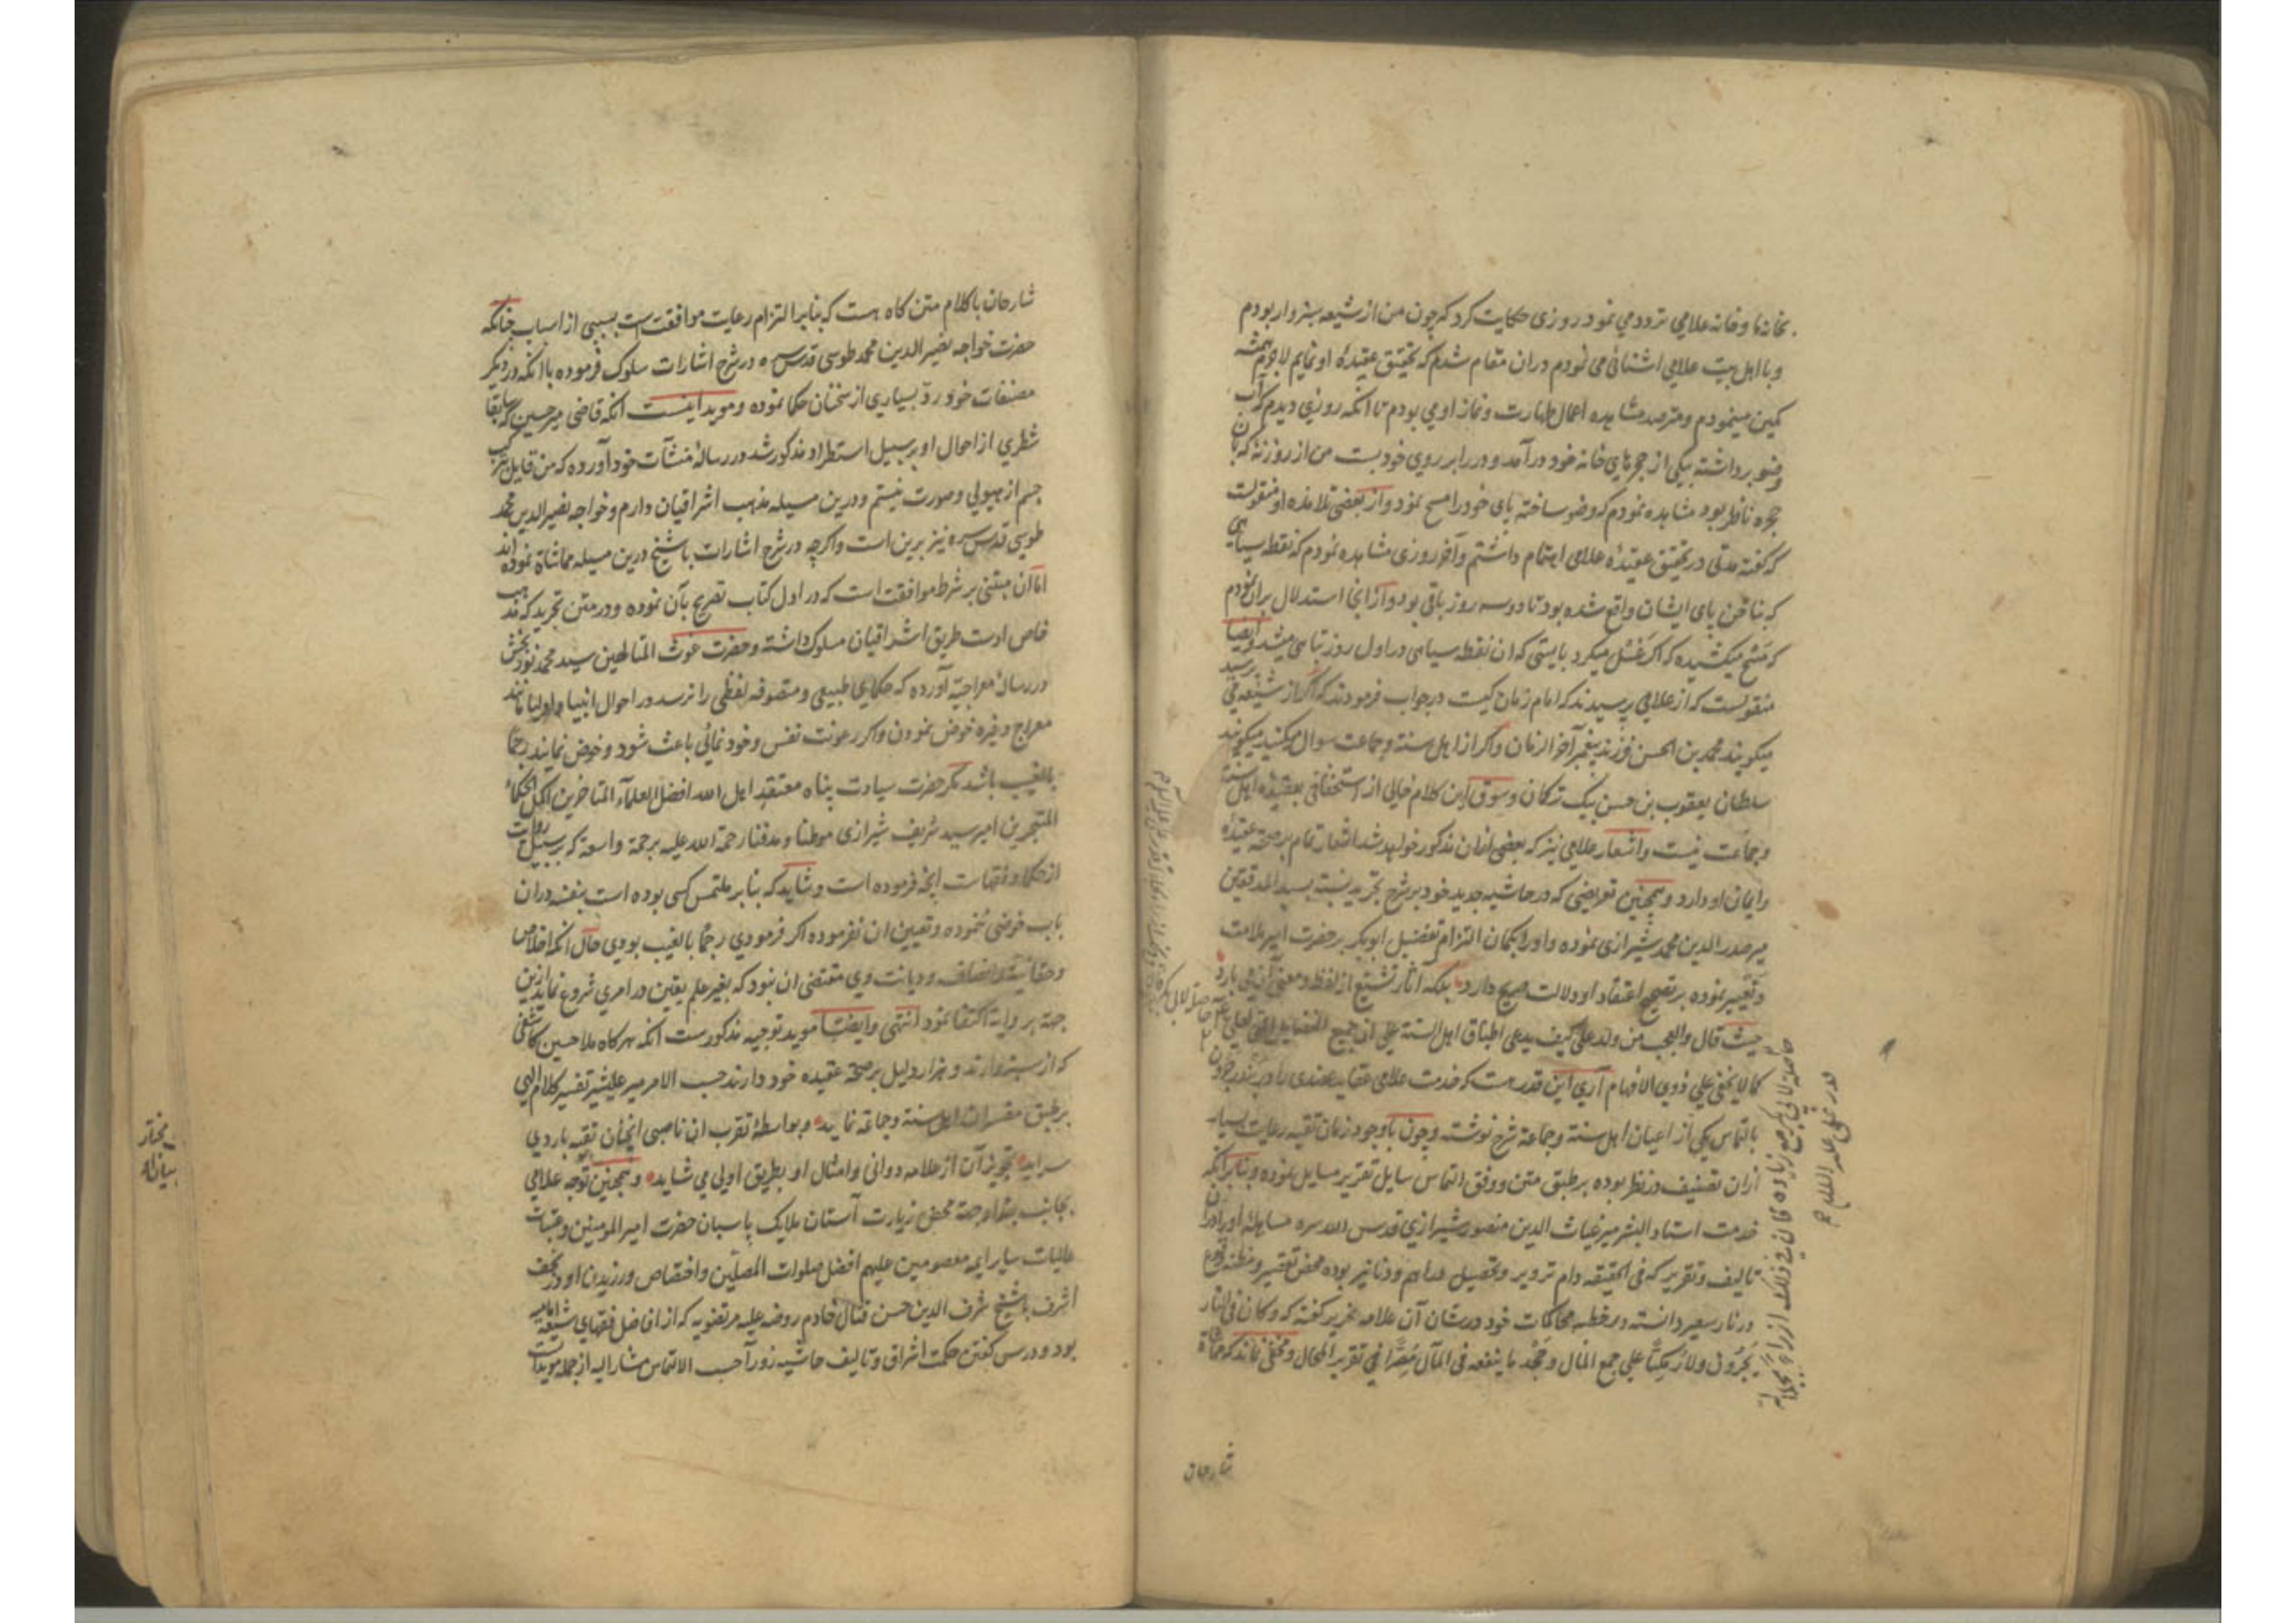 بخانها و خانه علامی تردد می نمود روزی حکایت کرد که چون من از شیعه سبزوار بودم
و با اهل بیت علامی اشنائی می نمودم دران مقام شدم که تحقیق عقیدهٔ او نمایم لاجرم همیشه
کمین مینمودم و مترصد مشاهده اعمال طهارت و نماز او می بودم تا انکه روزی دیدم که آب
وضو برداشته بیکی از حجرهای خانه خود درآمد و در برابر روی خود بست من از روزنه که بان
حجره ناظر بود مشاهده نمودم که وضو ساخته پای خود را مسح نمود و از بعضی تلامذه او منقولست
که گفته مدتی در تحقیق عقیدهٔ علامی اهتمام داشتم و آخر روزی مشاهده نمودم که نقطه سیاهی
که بناخن پای ایشان واقع شده بود تا دو سه روز باقی بود و از انجا استدلال بران نمودم
که مسح میکشیده که اگر غسل میکرد بایستی که ان نقطه سیاهی در اول روز تباهی میشد و ایضا
منقولست که از علامی پرسیدند که امام زمان کیست در جواب فرمودند که اگر از شیعه می پرسید
میکویند محمد بن الحسن فرزند پیغمبر آخر الزمان و اکر از اهل سنة و جماعت سوال میکنید میکویند
سلطان یعقوب بن حسن بیک ترکان و سوق این کلام خالی از استخفافی بعقیده اهل سنة
و جماعت نیست و اشعار علامی نیز که بعضی ازان مذکور خواهد شد اشعار تمام بر صحة عقیدهٔ
و ایمان او دارد و همچنین تعریضی که در حاشیه جدید خود بر شرح تجرید نسبة بسید المدققین
میر صدر الدین محمد شیرازی نموده و او را بکمان التزام تفضیل ابوبکر بر حضرت امیر ملامت
و تعییر نموده بر تصحیح اعتقاد او دلالت صریح دارد بلکه آثار تشیع از لفظ و معنی آن می بارد
حیث قال و العجب من ولد علی کیف یدعی اطباق اهل السنة علی ان جمیع الفضایل التی لعلی
کما لا یخفی علی ذوی الافهام آری این قدر هست که خدمت علامی عقاید عضدی را در بندر جرون
بالتماس یکی از اعیان اهل سنة و جماعة شرح نوشته و چون با وجود زمان تقیه رعایت بسیار
ازان تصنیف در نظر بوده بر طبق متن و وفق التماس سایل تقریر مسایل نموده و بنابرانکه
خدمت استاد البشر میر غیاث الدین منصور شیرازی قدس الله سره مساهلهٔ او را دران
تالیف و تقریر که فی الحقیقه دام تزویر و تحصیل دراهم و دنانیر بوده محض تقصیر و مظنه وقوع
در نار سعیر دانسته در خطبه محاکمات خود در شان آن علامه نحریر گفته که و کان فی النار
بجرون ولا زمکبّا علی جمع المال و محجّد ما ینفعه فی المآل مُصِرّا فی تقریر المحال و مخفی نماند که مماشاة
شارحان
شارحان با کلام متن کاه هست که بنابر التزام رعایت موافقتست بسببی از اسباب چنانکه
حضرت خواجه نصیر الدین محمد طوسی قدس سره در شرح اشارات سلوک فرموده با انکه در دیکر
مصنفات خود ردّ بسیاری از سخنان حکما نموده و موید اینست انکه قاضی میر حسین که سابقا
شطری از احوال او بر سبیل استطراد مذکور شد در رسالهٔ منشآت خود آورده که من قایل بترکب
جسم از هیولی و صورت نیستم و درین مسیله مذهب اشراقیان دارم و خواجه نصیر الدین محمد
طوسی قدس سره نیز برین است و اکرچه در شرح اشارات با شیخ درین مسیله مماشاة نموده اند
اما آن مبتنی بر شرط موافقت است که در اول کتاب تصریح بآن نموده و در متن تجرید که مذهب
خاص اوست طریق اشراقیان مسلوک داشته و حضرت غوث المتالهین سید محمد نوربخش
در رسالهٔ معراجیه آورده که حکمای طبیعی و متصوفه لفظی را نرسد در احوال انبیا و اولیا مانند
معراج و غیره خوض نمودن و اکر رعونت نفس و خود نمائی باعث شود و خوض نمایند رجما
بالغیب باشد مکر حضرت سیادت پناه معتقد اهل الله افضل العلماء المتاخرین اکمل الحکماء
المتبحرین امیر سید شریف شیرازی موطنا و مدفنا رحمة الله علیه برحمة واسعة که بر سبیل روایت
از حکما و فقهاست آنچه فرموده است و شاید که بنابر ملتمس کسی بوده است بنفسه دران
باب خوضی نموده و تعیین ان نفرموده اکر فرمودی رجما بالغیب بودی حال انکه اخلاص
و حقانیة و انصاف و دیانت وی مقتضی ان نبود که بغیر علم یقین در امری شروع نماید ازین
جهة بروایة اکتفا نمود انتهی و ایضا موید توجیه مذکورست انکه هرکاه ملا حسین کاشفی
که از سبزوارند و هزار دلیل بر صحة عقیده خود دارند حسب الامر میر علیشیر تفسیر کلام الهی
بر طبق مفسران اهل سنة و جماعة نماید و بواسطهٔ تقرب ان ناصبی انچنان تقیه باردی
سراید تجویز آن از علامه دوانی و امثال او بطریق اولی می شاید و همچنین توجه علامی
بجانب بغداد جهة محض زیارت آستان ملایک پاسبان حضرت امیر المومنین و عتبات
عالیات سایر ایمه معصومین علیهم افضل صلوات المصلّین و اختصاص ورزیدن او در نجف
اشرف با شیخ شرف الدین حسن فتال خادم روضه علیه مرتضویه که از افاضل فقهای شیعهٔ امامیه
بود و درس کفتن حکمت اشراق و تالیف حاشیه زورآ حسب الالتماس مشار الیه از جمله مویدات